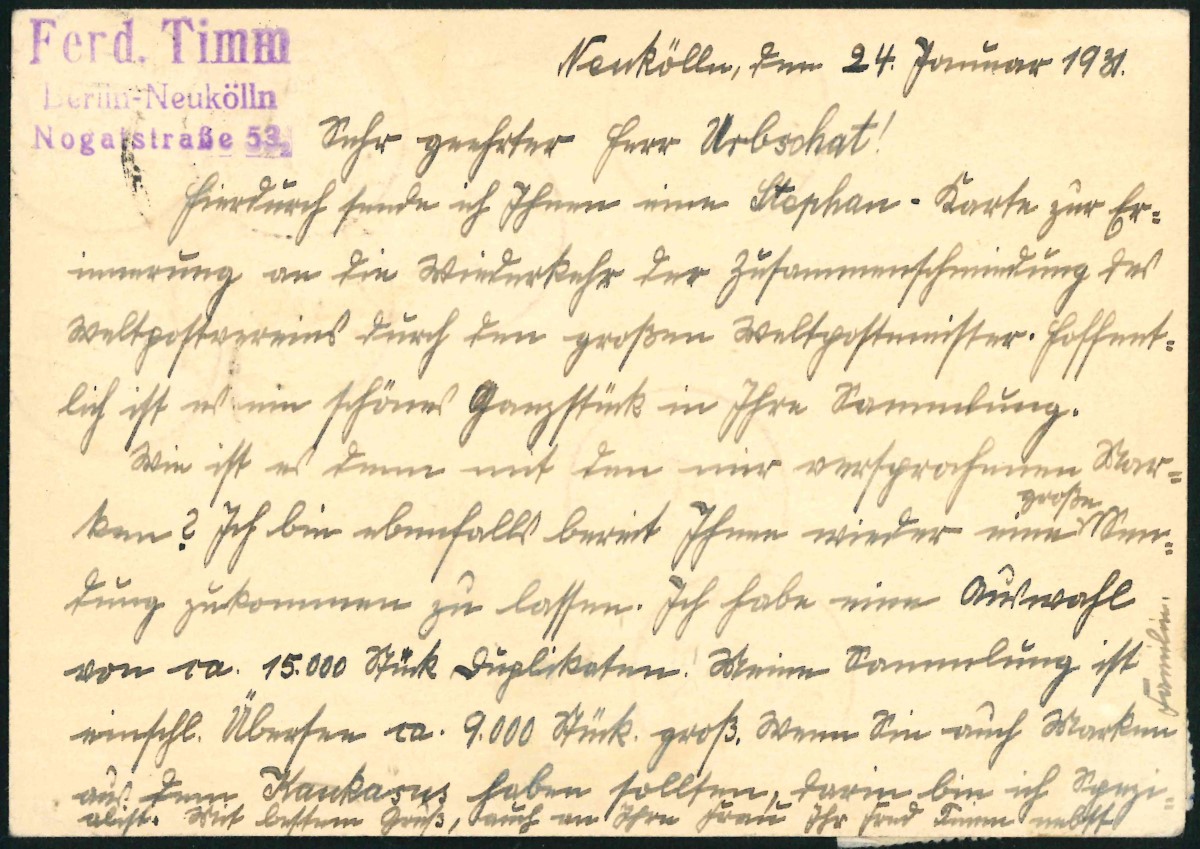 Ferd. Timm
Berlin-Neukölln
Nogatstraße 53
Neukölln, den 24. Januar 1931.
Sehr geehrter Herr Urbschat!
Hierdurch sende ich Ihnen eine Stephan-Karte zur Er-
innerung an die Wiederkehr der Zusammenschmiedung des
Weltpostvereins durch den großen Weltpostmeister. Hoffent-
lich ist es ein schönes Ganzstück in Ihre Sammlung.
Wie ist es denn mit den mir versprochenen Mar-
ken? Ich bin ebenfalls bereit Ihnen wieder eine große Sen-
dung zukommen zu lassen. Ich habe eine Auswahl
von ca. 15.000 Stück Duplikaten! Meine Sammlung ist
einschl. Übersee ca. 9.000 Stück groß. Wenn Sie auch Marken
aus dem Kaukasus haben sollten, darin bin ich Spezi-
alist. Mit bestem Gruß, auch an Ihre Frau Ihr Ferd Timm nebst
Familie.